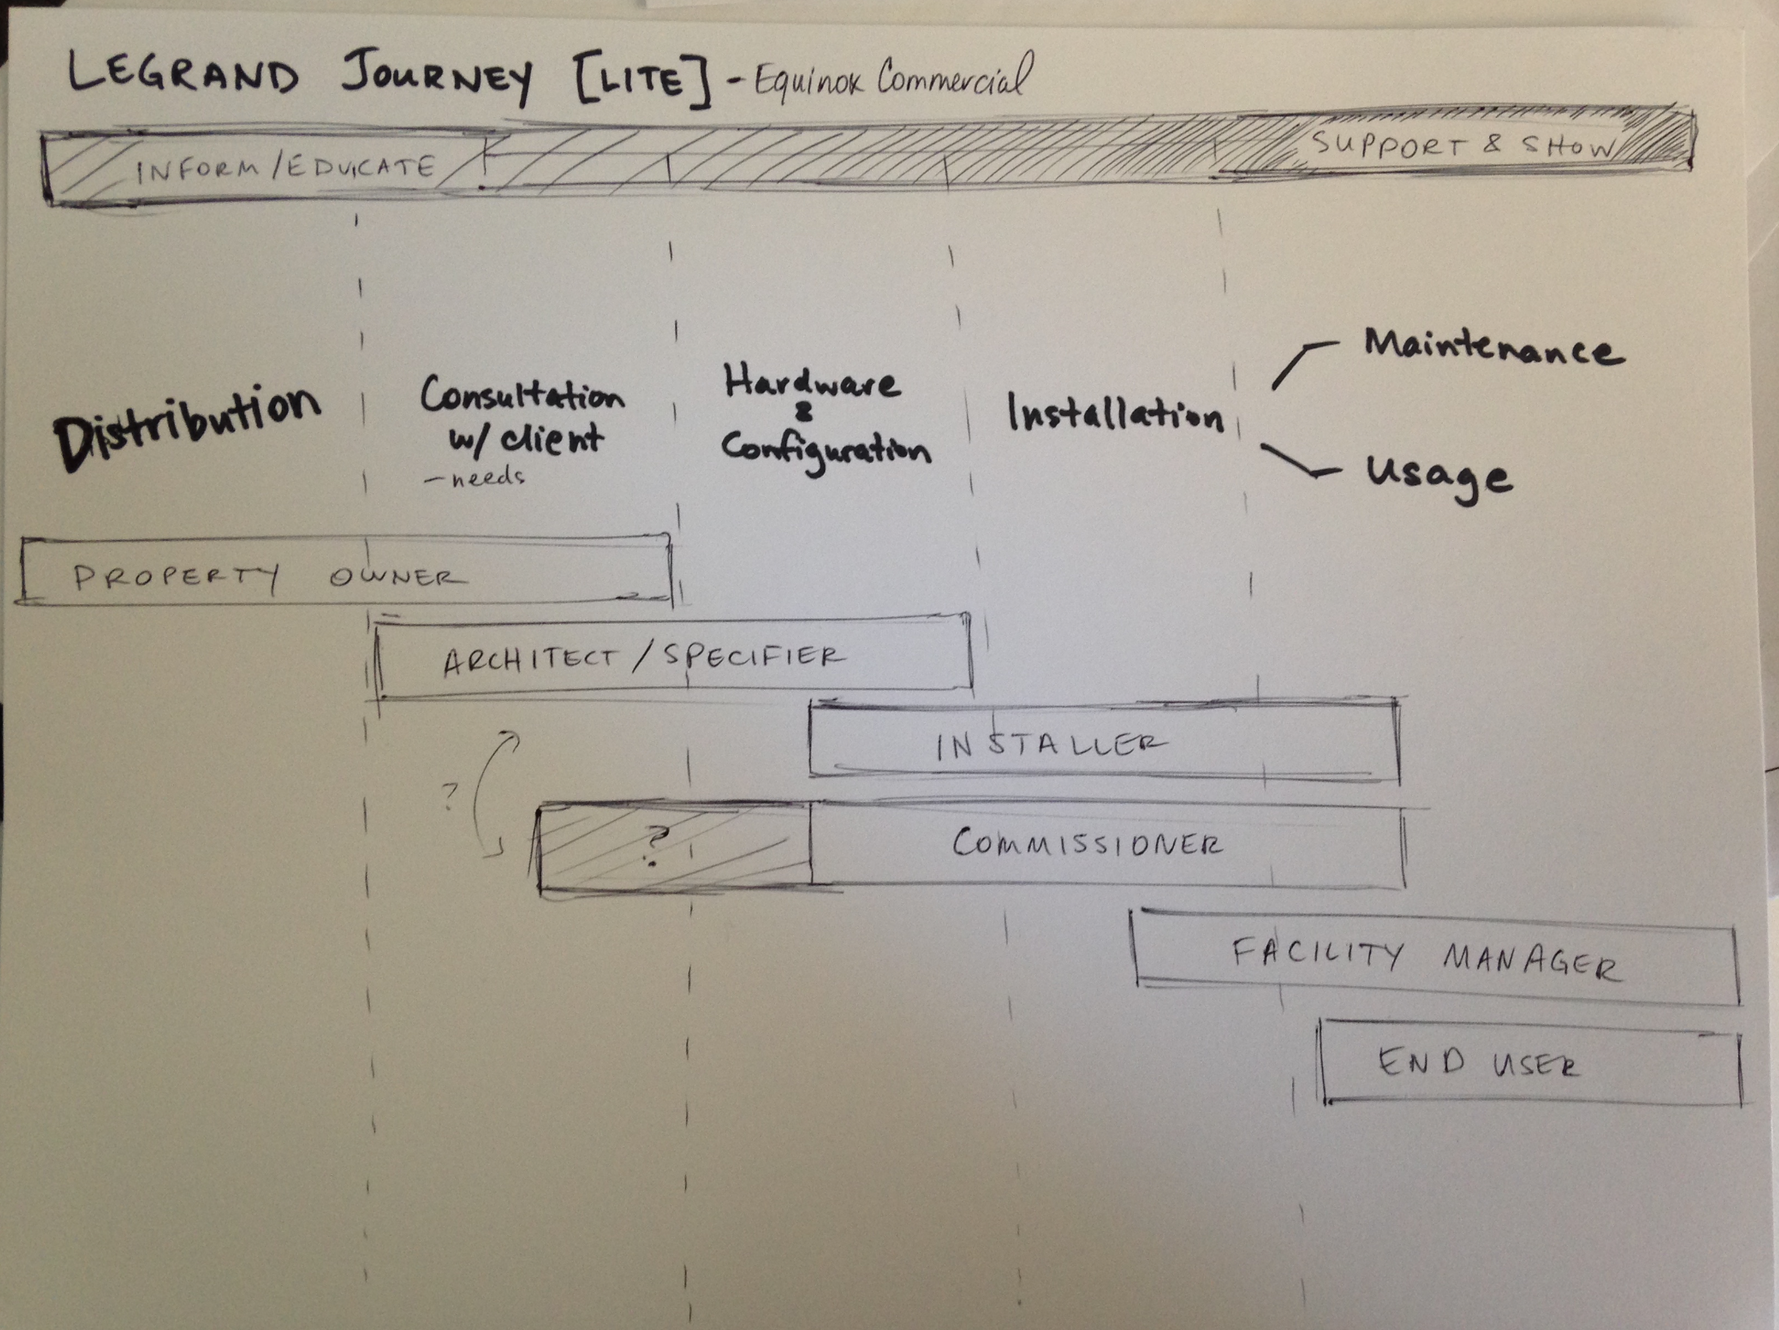 LEGRAND JOURNEY [LITE] - Equinox Commercial
INFORM/EDUCATE
SUPPORT & SHOW
Distribution
Consultation
w/ client
- needs
Hardware
&
Configuration
Installation
Maintenance
Usage
PROPERTY OWNER
ARCHITECT / SPECIFIER
INSTALLER
?
?
COMMISSIONER
FACILITY MANAGER
END USER